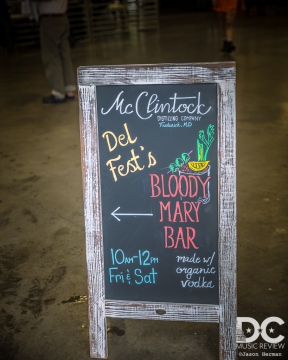 McClintock
DISTILLING COMPANY
Frederick, MD
Del
Fest's
BLOODY
MARY
BAR
10AM-12PM
Fri & Sat
made w/
organic
vodka
DC
MUSIC REVIEW
©Jason Herman